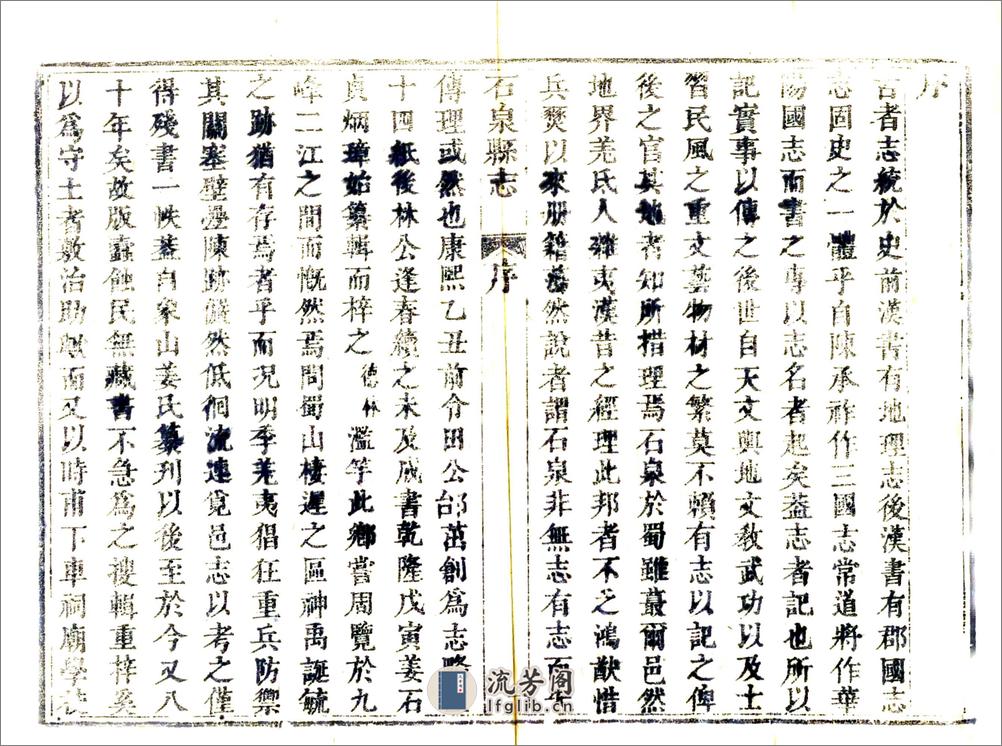 序
古者志統於史前漢書有地理志後漢書有郡國志
志固史之一體乎自陳承祚作三國志常道將作華
陽國志而書之專以志名者起矣蓋志者記也所以
記實事以傳之後世自天文輿地文教武功以及士
習民風之重文藝物材之繁莫不賴有志以記之俾
後之官其地者知所措理焉石泉於蜀雖蕞爾邑然
地界羌氐人雜夷漢昔之經理此邦者不乏鴻猷惜
兵燹以來册籍蕩然說者謂石泉非無志有志而
石泉縣志
序
傳理或然也康熙乙丑前令田公邰茁創為志略
十四紙後林公逢春續之未及成書乾隆戊寅姜石
貞炳璋始纂輯而梓之德林濫竽此鄉嘗周覽於九
峰二江之間而慨然焉問蜀山棲遲之區神禹誕毓
之跡猶有存焉者乎而況明季羌夷猖狂重兵防禦
其關塞壁壘陳跡儼然低徊流連覓邑志以考之僅
得殘書一帙蓋自象山姜氏纂刋以後至於今又八
十年矣故版蠹蝕民無藏書不急為之搜輯重梓奚
以為守土者敷治助與而又以時甫下車祠廟學
流芳阁
lfglib.cn